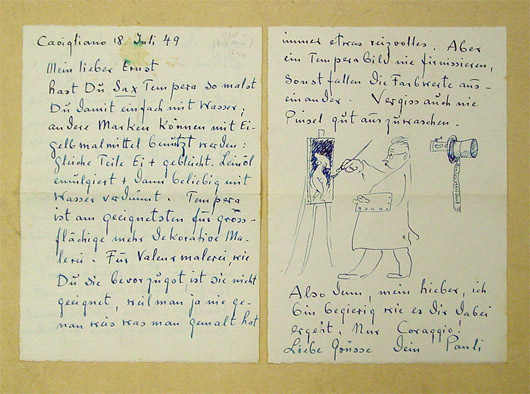 Cavigliano 18. Juli 49
Mein lieber Ernst
hast Du Sax Tempera so malst
Du damit einfach mit Wasser;
andere Marken können mit Ei-
gelbmalmittel benützt werden:
gleiche Teile Ei + gebleicht. Leinöl
emulgiert + dann beliebig mit
Wasser verdünnt. Tempera
ist am geeignetsten für gross-
flächige mehr dekorative Ma-
lerei. Für Valeurmalerei, wie
Du sie bevorzugst ist sie nicht
geeignet, weil man ja nie ge-
nau weis was man gemalt hat
immer etwas reizvolles. Aber
ein Tempera Bild nie firnissieren,
sonst fallen die Farbwerte aus-
einander. Vergiss auch nie
Pinsel gut auszuwaschen.
Also denn, mein lieber, ich
bin begierig wie es dir dabei
ergeht! Nur Coraggio!
Liebe Grüsse Dein Pauli